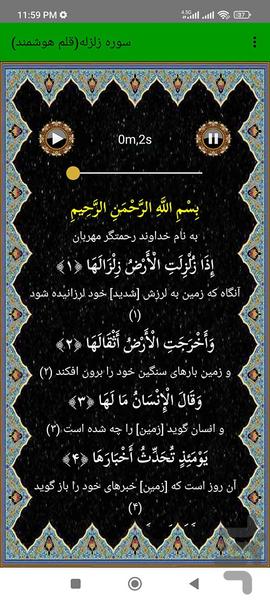 11:59 PM
4.5G
37
سوره زلزله(قلم هوشمند)
0m,2s
بِسْمِ اللَّهِ الرَّحْمَنِ الرَّحِيمِ
به نام خداوند رحمتگر مهربان
إِذَا زُلْزِلَتِ الْأَرْضُ زِلْزَالَهَا ﴿۱﴾
آنگاه که زمین به لرزش [شدید] خود لرزانیده شود
(۱)
وَأَخْرَجَتِ الْأَرْضُ أَثْقَالَهَا ﴿۲﴾
و زمین بارهای سنگین خود را برون افکند (۲)
وَقَالَ الْإِنْسَانُ مَا لَهَا ﴿۳﴾
و انسان گوید [زمین] را چه شده است (۳)
يَوْمَئِذٍ تُحَدِّثُ أَخْبَارَهَا ﴿۴﴾
آن روز است که [زمین] خبرهای خود را باز گوید
(۴)